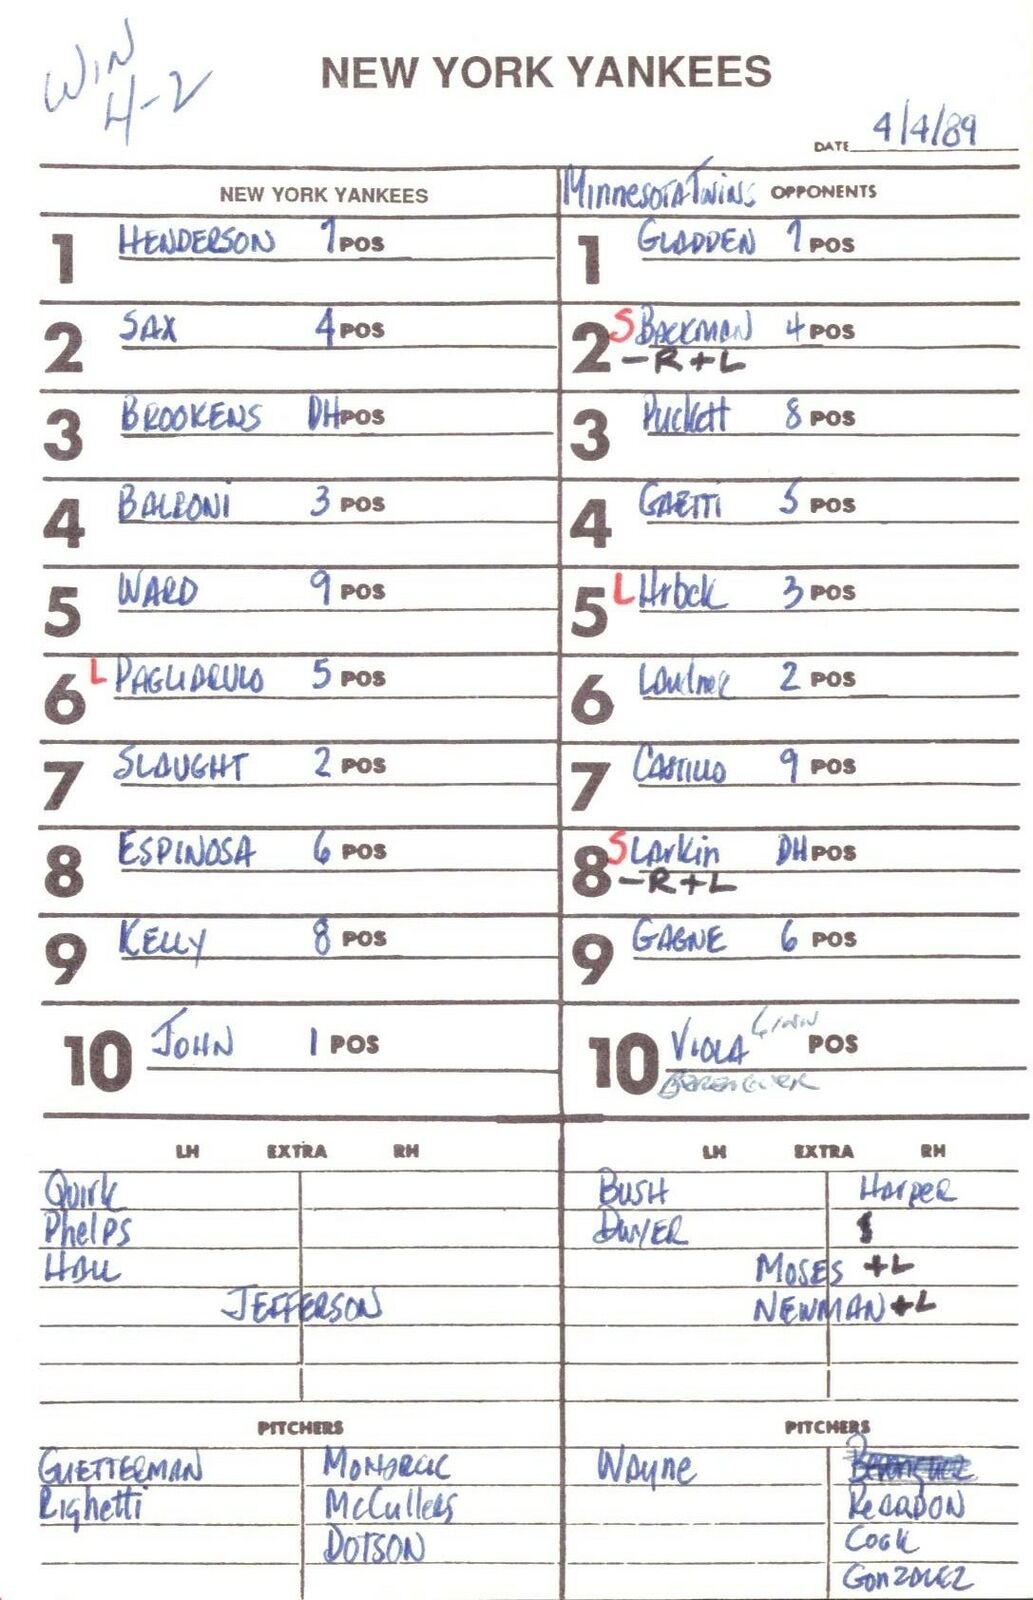 WIN
4-2
NEW YORK YANKEES
DATE 4/4/89
NEW YORK YANKEES
Minnesota Twins OPPONENTS
1 HENDERSON 7 POS
1 GLADDEN 7 POS
2 SAX 4 POS
2 S BACKMAN 4 POS
-R +L
3 BROOKENS DH POS
3 Puckett 8 POS
4 BALBONI 3 POS
4 GAETTI 5 POS
5 WARD 9 POS
5 L Hrbek 3 POS
6 L PAGLIARULO 5 POS
6 Laudner 2 POS
7 SLAUGHT 2 POS
7 CASTILLO 9 POS
8 ESPINOSA 6 POS
8 S Larkin DH POS
-R +L
9 KELLY 8 POS
9 GAGNE 6 POS
10 JOHN 1 POS
10 VIOLA POS
BERENGUER
LH EXTRA RH
LH EXTRA RH
Quirk
BUSH Harper
Phelps
DWYER
HALL
MOSES +L
JEFFERSON
NEWMAN +L
PITCHERS
PITCHERS
GUETTERMAN MOHORCIC
Wayne Berenguer
Righetti McCullers
REARDON
DOTSON
Cook
GONZALEZ